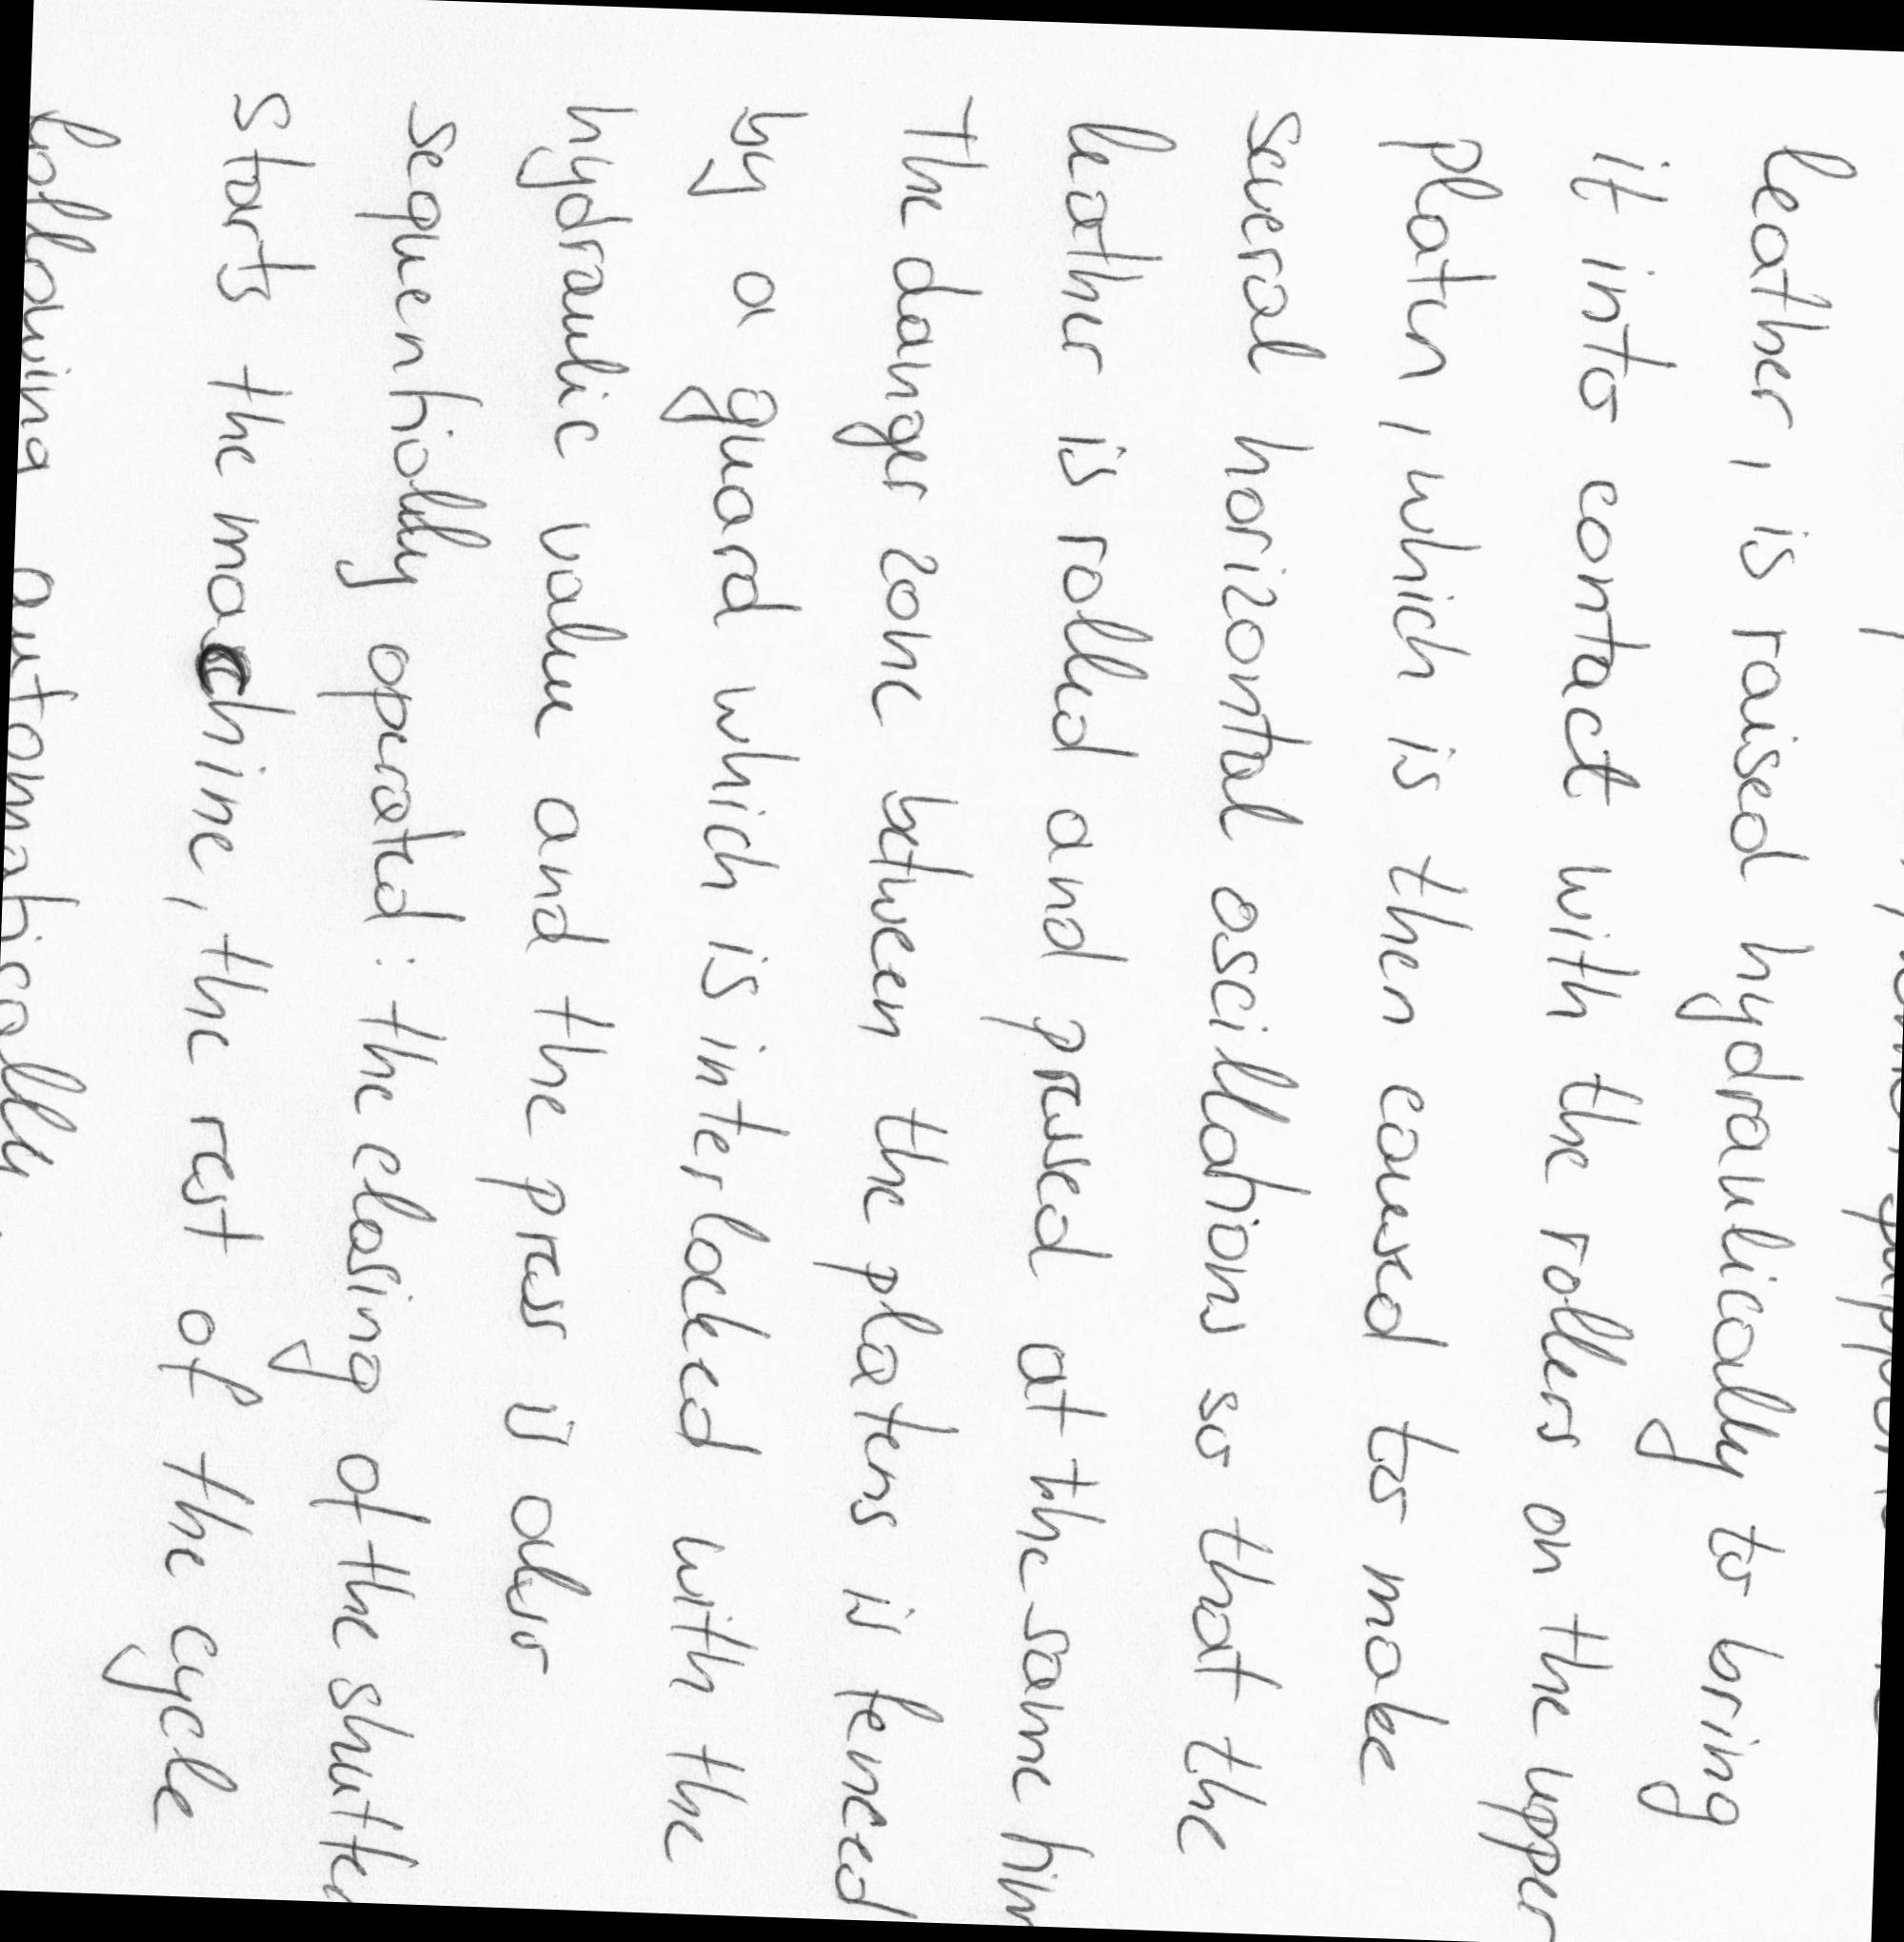 leather, is raised hydraulically to bring
it into contact with the rollers on the upper
platen, which is then caused to make
several horizontal oscillations so that the
leather is rolled and pressed at the same time
The danger zone between the platens is fenced
by a guard which is interlocked with the
hydraulic value and the press is also
sequentially operated: the closing of the shutter
starts the machine, the rest of the cycle
following automatically.